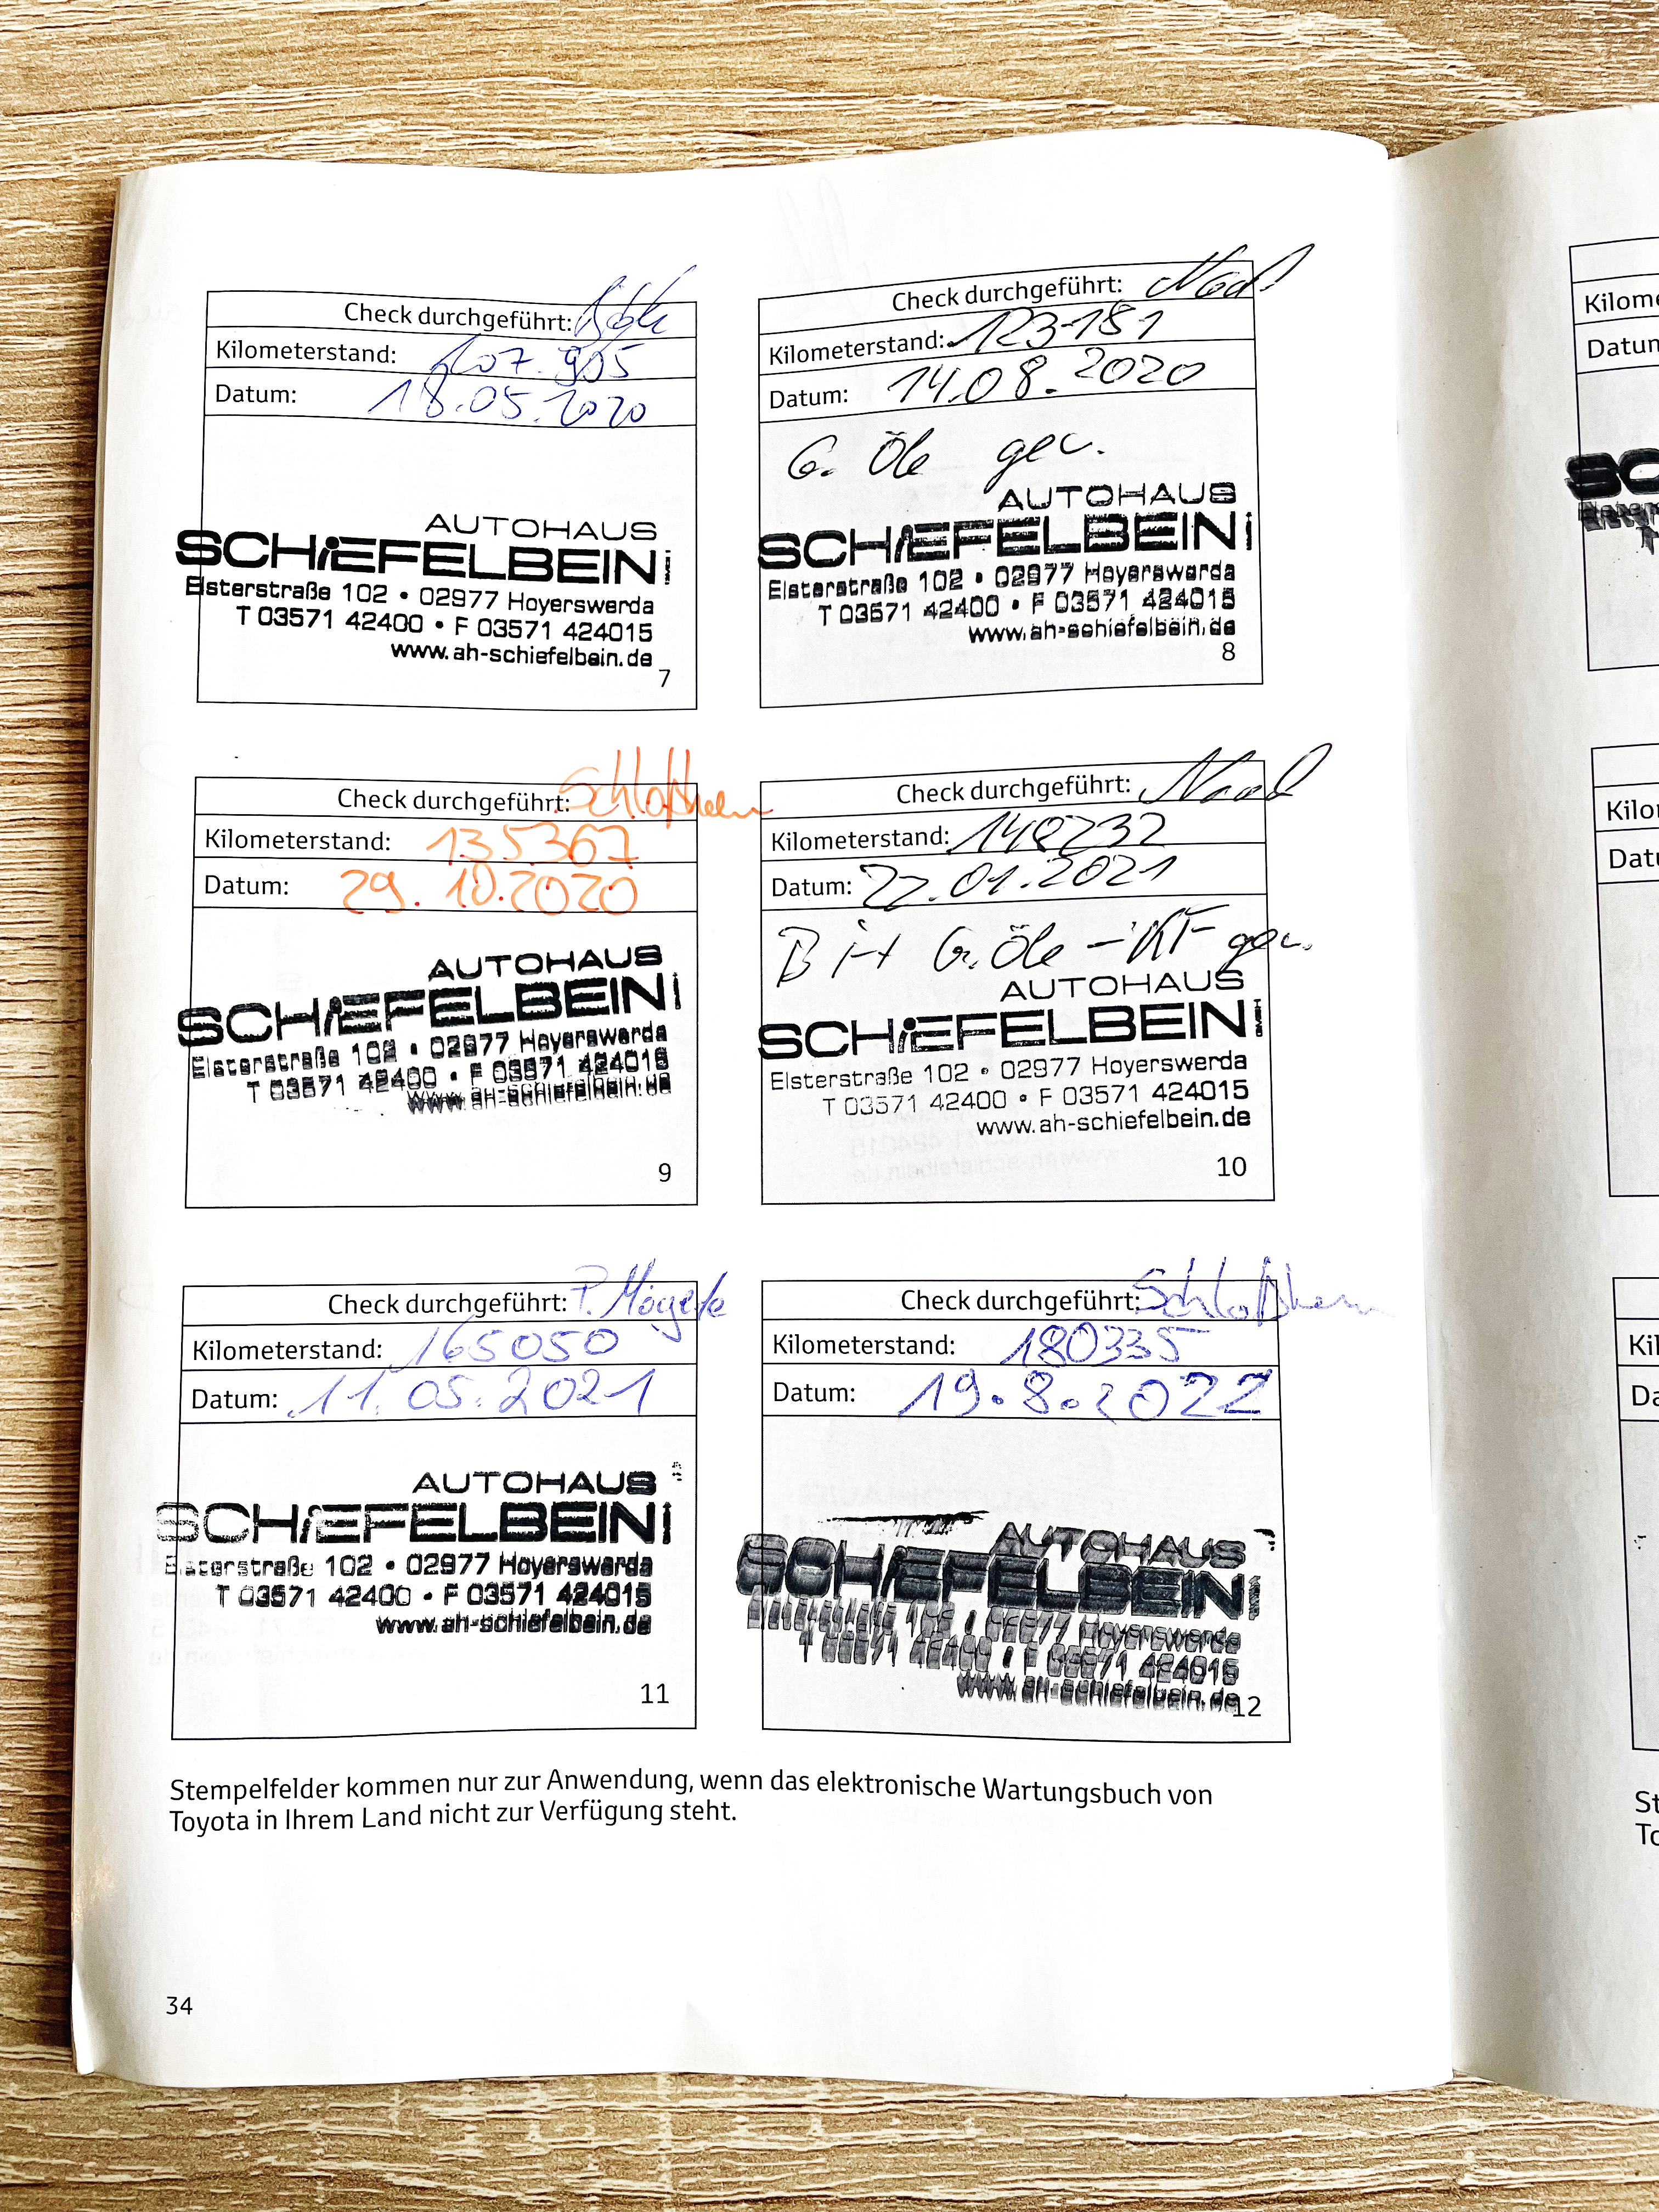 Check durchgeführt:
Kilometerstand: 107.905
Datum: 18.05.2020
AUTOHAUS
SCHiEFELBEIN GMBH
Elsterstraße 102 • 02977 Hoyerswerda
T 03571 42400 • F 03571 424015
www.ah-schiefelbein.de
7
Check durchgeführt:
Kilometerstand: 123181
Datum: 14.08.2020
G. Öle gew.
AUTOHAUS
SCHiEFELBEIN
Elsterstraße 102 • 02977 Hoyerswerda
T 03571 42400 • F 03571 424015
www.ah-schiefelbein.de
8
Check durchgeführt:
Kilometerstand: 135367
Datum: 29.10.2020
AUTOHAUS
SCHiEFELBEIN
Elsterstraße 102 • 02977 Hoyerswerda
T 03571 42400 • F 03571 424015
www.ah-schiefelbein.de
9
Check durchgeführt:
Kilometerstand: 148232
Datum: 22.01.2021
G. Öle - KF gew.
AUTOHAUS
SCHiEFELBEIN GMBH
Elsterstraße 102 • 02977 Hoyerswerda
T 03571 42400 • F 03571 424015
www.ah-schiefelbein.de
10
Check durchgeführt:
Kilometerstand: 165050
Datum: 11.05.2021
AUTOHAUS
SCHiEFELBEIN
Elsterstraße 102 • 02977 Hoyerswerda
T 03571 42400 • F 03571 424015
www.ah-schiefelbein.de
11
Check durchgeführt:
Kilometerstand: 180335
Datum: 19.8.2022
AUTOHAUS
SCHiEFELBEIN
Elsterstraße 102 • 02977 Hoyerswerda
T 03571 42400 • F 03571 424015
www.ah-schiefelbein.de
12
Stempelfelder kommen nur zur Anwendung, wenn das elektronische Wartungsbuch von
Toyota in Ihrem Land nicht zur Verfügung steht.
34